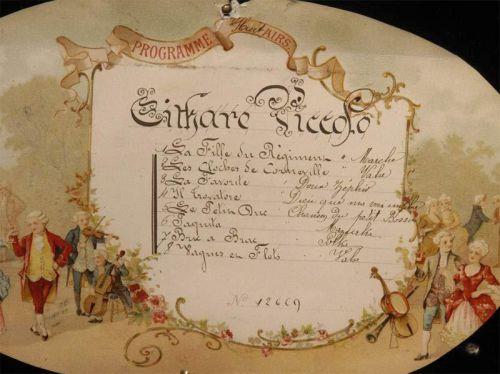 PROGRAMME Huit AIRS.
Cithare Piccolo
1 La Fille du Régiment Marche
2 Les Cloches de Corneville Valse
3 La Favorite Doux Zéphir
4 Il trovatore Dieu que ma voix
5 Le Petit Duc Chanson du petit Bossu
6 Paquita Mazurka
7 Bric à Brac Polka
8 Vagues en Flots Valse
No 12609